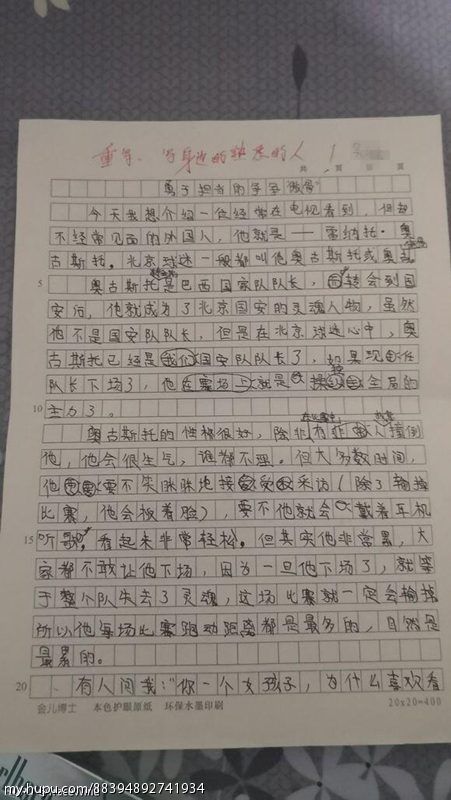 重写、写身边的熟悉的人
共 页 第 页
勇于担当的李圣傲骨"
今天我想介绍一位经常在电视看到，但却
不经常见面的外国人，他就是——雷纳托·奥
古斯托。北京球迷一般都叫他奥古斯托或奥
奥古斯托是巴西国家队队长，转会到国
安问，他就成为了北京国安的灵魂人物，虽然
他不是国安队队长，但是在北京球迷心中，奥
古斯托已经是我们国安队队长了，如果现任
队长下场了，他在赛场上就是操全局的
主力了。
奥古斯托的性格很好，除非有人撞倒
他，他会很生气，谁都不理。但大多数时间，
他要不失眯眯地接受采访（除了输掉
比赛，他会板着脸），要不他就会戴着耳机
听歌，看起来非常轻松。但其实他非常累，大
家都不敢让他下场，因为一旦他下场了，就等
于整个队失去了灵魂，这场比赛就一定会输掉
所以他每场比赛跑动距离都是最多的，自然是
最累的。
有人问我："你一个女孩子，为什么喜欢看
5
10
15
20
会儿博士 本色护眼原纸 环保水墨印刷 20x20=400
my.hupu.com/88394892741934